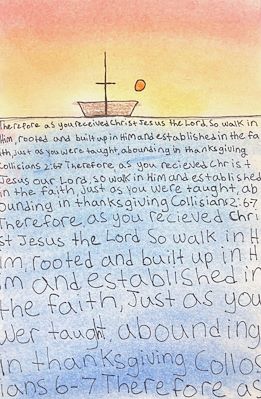 Therefore as you received Christ Jesus the Lord, So walk in
Him, rooted and built up in Him and established in the fa
ith, Just as you were taught, abounding in thanksgiving
Collisians 2:67 Therefore as you recieved Christ
Jesus our Lord, so walk in Him and established
in the faith just as you were taught, ab
ounding in thanksgiving Collisians 2:67
Therefore as you recieved Chri
st Jesus the Lord So walk in H
im rooted and built up in H
im and established in
the faith, Just as you
wer taught, abounding
in thanksgiving Collos
ians 6-7 Therefore as